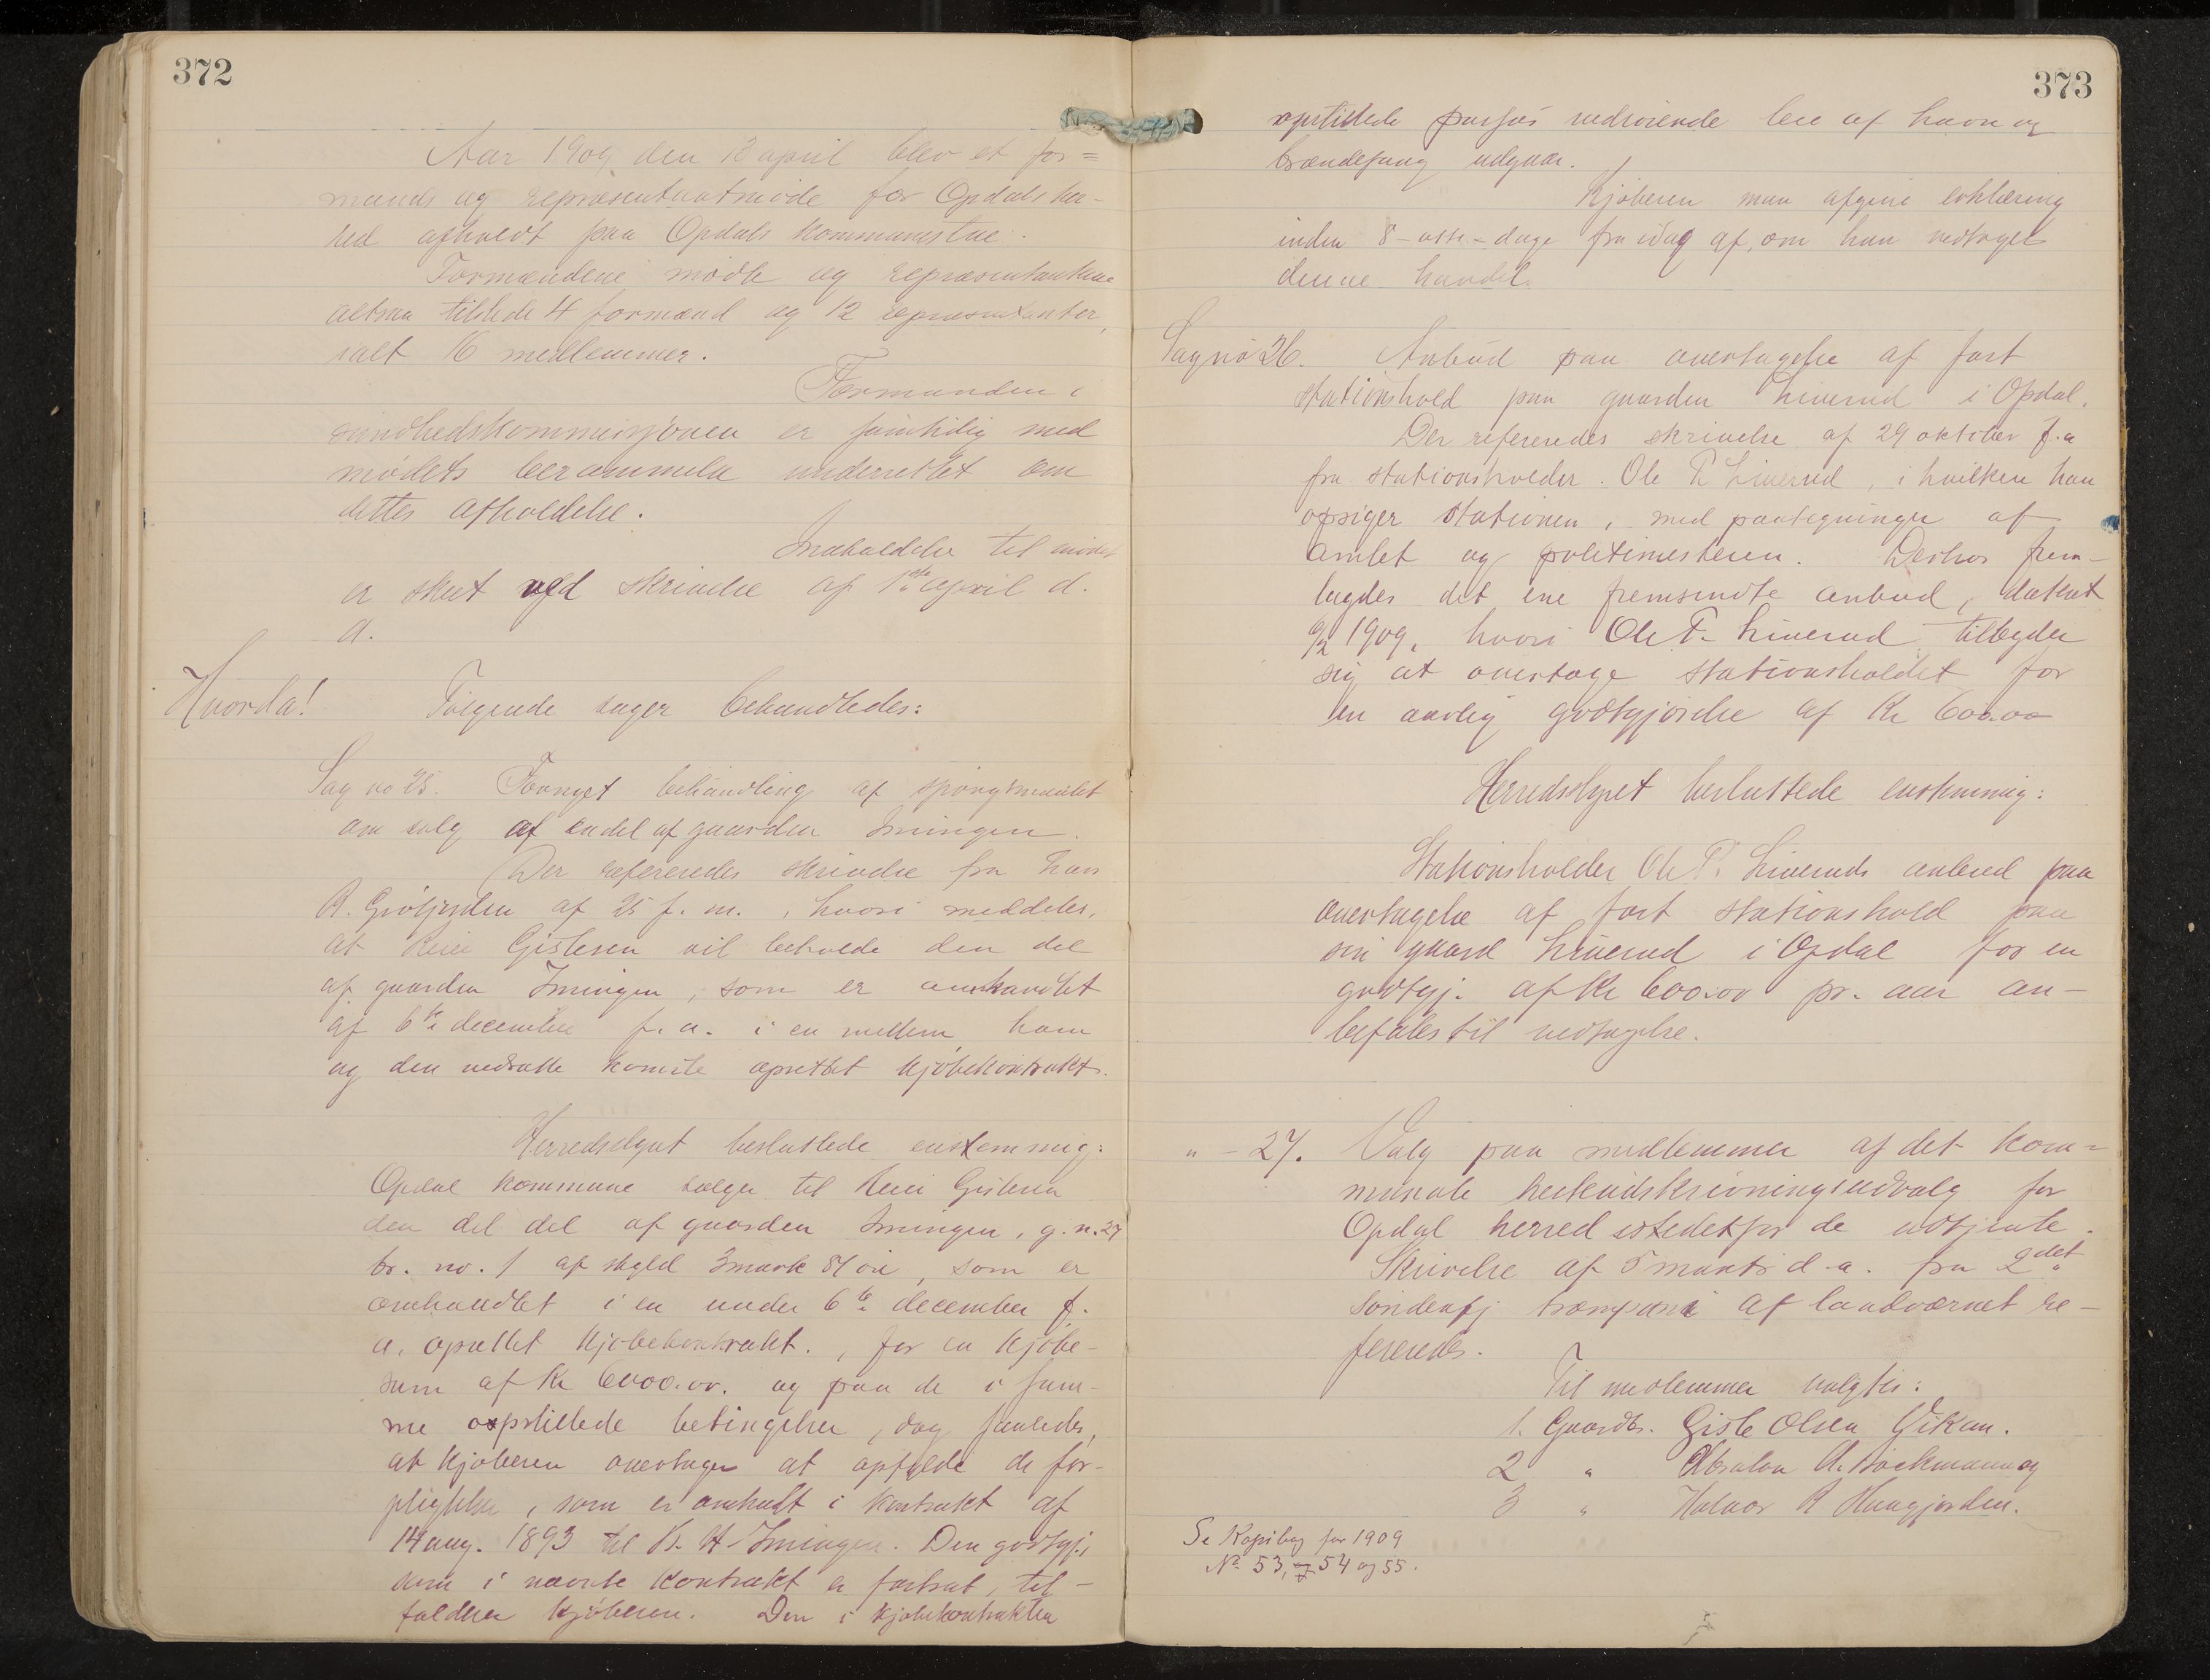 372
Aar 1909 den 13 april blev et for=
mands og repræsentantmøde for Opdals her-
red afholdt paa Opdals kommunestue.
Formændene mødte og repræsentanterne
altsaa tilstede 4 formænd og 12 repræsentanter,
ialt 16 medlemmer.
Formanden i
sundhedskommissjonen er samtidig med
mødets berammelse underrettet om
dettes afholdelse.
Indkaldelse til mødet
er skeet ved skrivelse af 1ste april d.
a.
Hvorda! Følgende sager behandledes:
Sag no 25. Fornyet behandling af spørgsmaalet
om salg af endel af gaarden Imingen.
Der refereredes skrivelse fra Hans
A. af 25 f. m., hvori meddeles,
at Gislesen vil beholde den del
af gaarden Imingen, som er omhandlet
af 6te december f. a. i en mellem ham
og den nedsatte komite oprettet kjøbekontrakt.
Herredsstyret besluttede enstemmig:
Opdal kommune sælger til Gislesen
den del del af gaarden Imingen, g. n. 27
br. no. 1 af skyld 3 mark 84 øre, som er
omhandlet i en under 6te december f.
a. oprettet kjøbekontrakt., for en kjøbe-
sum af Kr 6000.00. og paa de i sam-
me opstillede betingelser, dog saaledes,
at kjøberen overtager at opfylde de for-
pligtelser, som er omhandlet i kontrakt af
14 aug. 1893 til K. H. Imingen. Den godtgj.
som i nævnte kontrakt er fastsat, til-
falder kjøberen. Den i kjøbekontrakten
373
opstillede passus vedrørende leie af havn og
brændefang udgaar.
Kjøberen maa afgive erklæring
inden 8-otte-dage fra idag af, om han vedtager
denne handel.
Sag no 26. Anbud paa overtagelse af fast
stationshold paa gaarden Liverud i Opdal.
Der refereredes skrivelse af 29 oktober f.a
fra stationsholder Ole T. Liverud, i hvilken han
opsiger stationen, med paategninger af
amtet og politimesteren. Derhos frem-
lagdes det ene fremsendte anbud, dateret
1909, hvori Ole T. Liverud tilbyder
sig at overtage stationsholdet for
en aarlig godtgjørelse af Kr 600.00
Herredsstyret besluttede enstemmig:
Stationsholder Ole T. Liveruds anbud paa
overtagelse af fast stationshold paa
sin gaard Liverud i Opdal for en
godtgj. af Kr 600.00 pr. aar an-
befales til vedtagelse.
" - 27. Valg paa medlemmer af det kom=
munale hesteudskrivningsudvalg for
Opdal herred istedetfor de udtjente.
Skrivelse af 5 marts d.a. fra 2det
søndenfj. trænkompani af landværnet re-
fereredes.
Til medlemmer valgtes:
1. Gaardbr. Gisle Olsen Vikan.
2 " Absalon A. Brekmann og
3 " Halvor A Haugjorden.
Se Kopibog for 1909
No 53, 54 og 55.